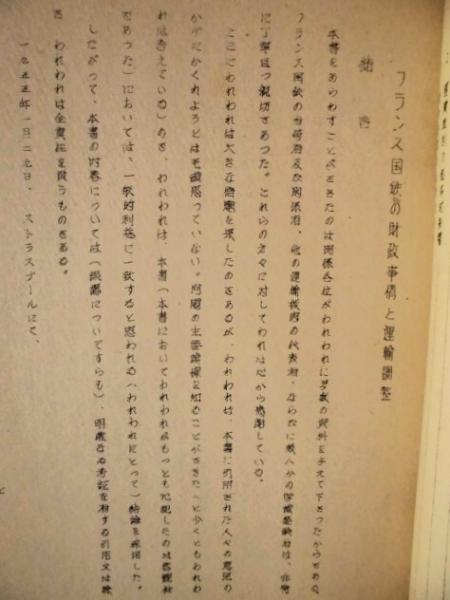 フランス国鉄の財政事情と運輸調整
緒言
本書をあらわすことができたのは関係各位がわれわれに多数の資料を与えて下さつたからである。
フランス国鉄の当局者及び関係者、他の運輸機関の代表者、ならびに の は、非常
に丁寧且つ親切であつた。これらの方々に対してわれわれは心から感謝している。
ここにわれわれは大きな を果したのであるが、われわれは、本書に引用された人々の意見の
かげにかくれようとは毛頭思つていない。問題の主要 を知ることができた(と少くともわれわ
れは考えている)のも、われわれは、本書(本書においてわれわれがもつとも心配したのは客観性
であつた)においては、一般的利益に一致すると思われる(われわれにとつて)結論を採用した。
したがつて、本書の内容については( についてすらも)、明確なる考証を有する引用文は除
き われわれは全責任を負うものである。
一九五五年一月二九日、ストラスブールにて、